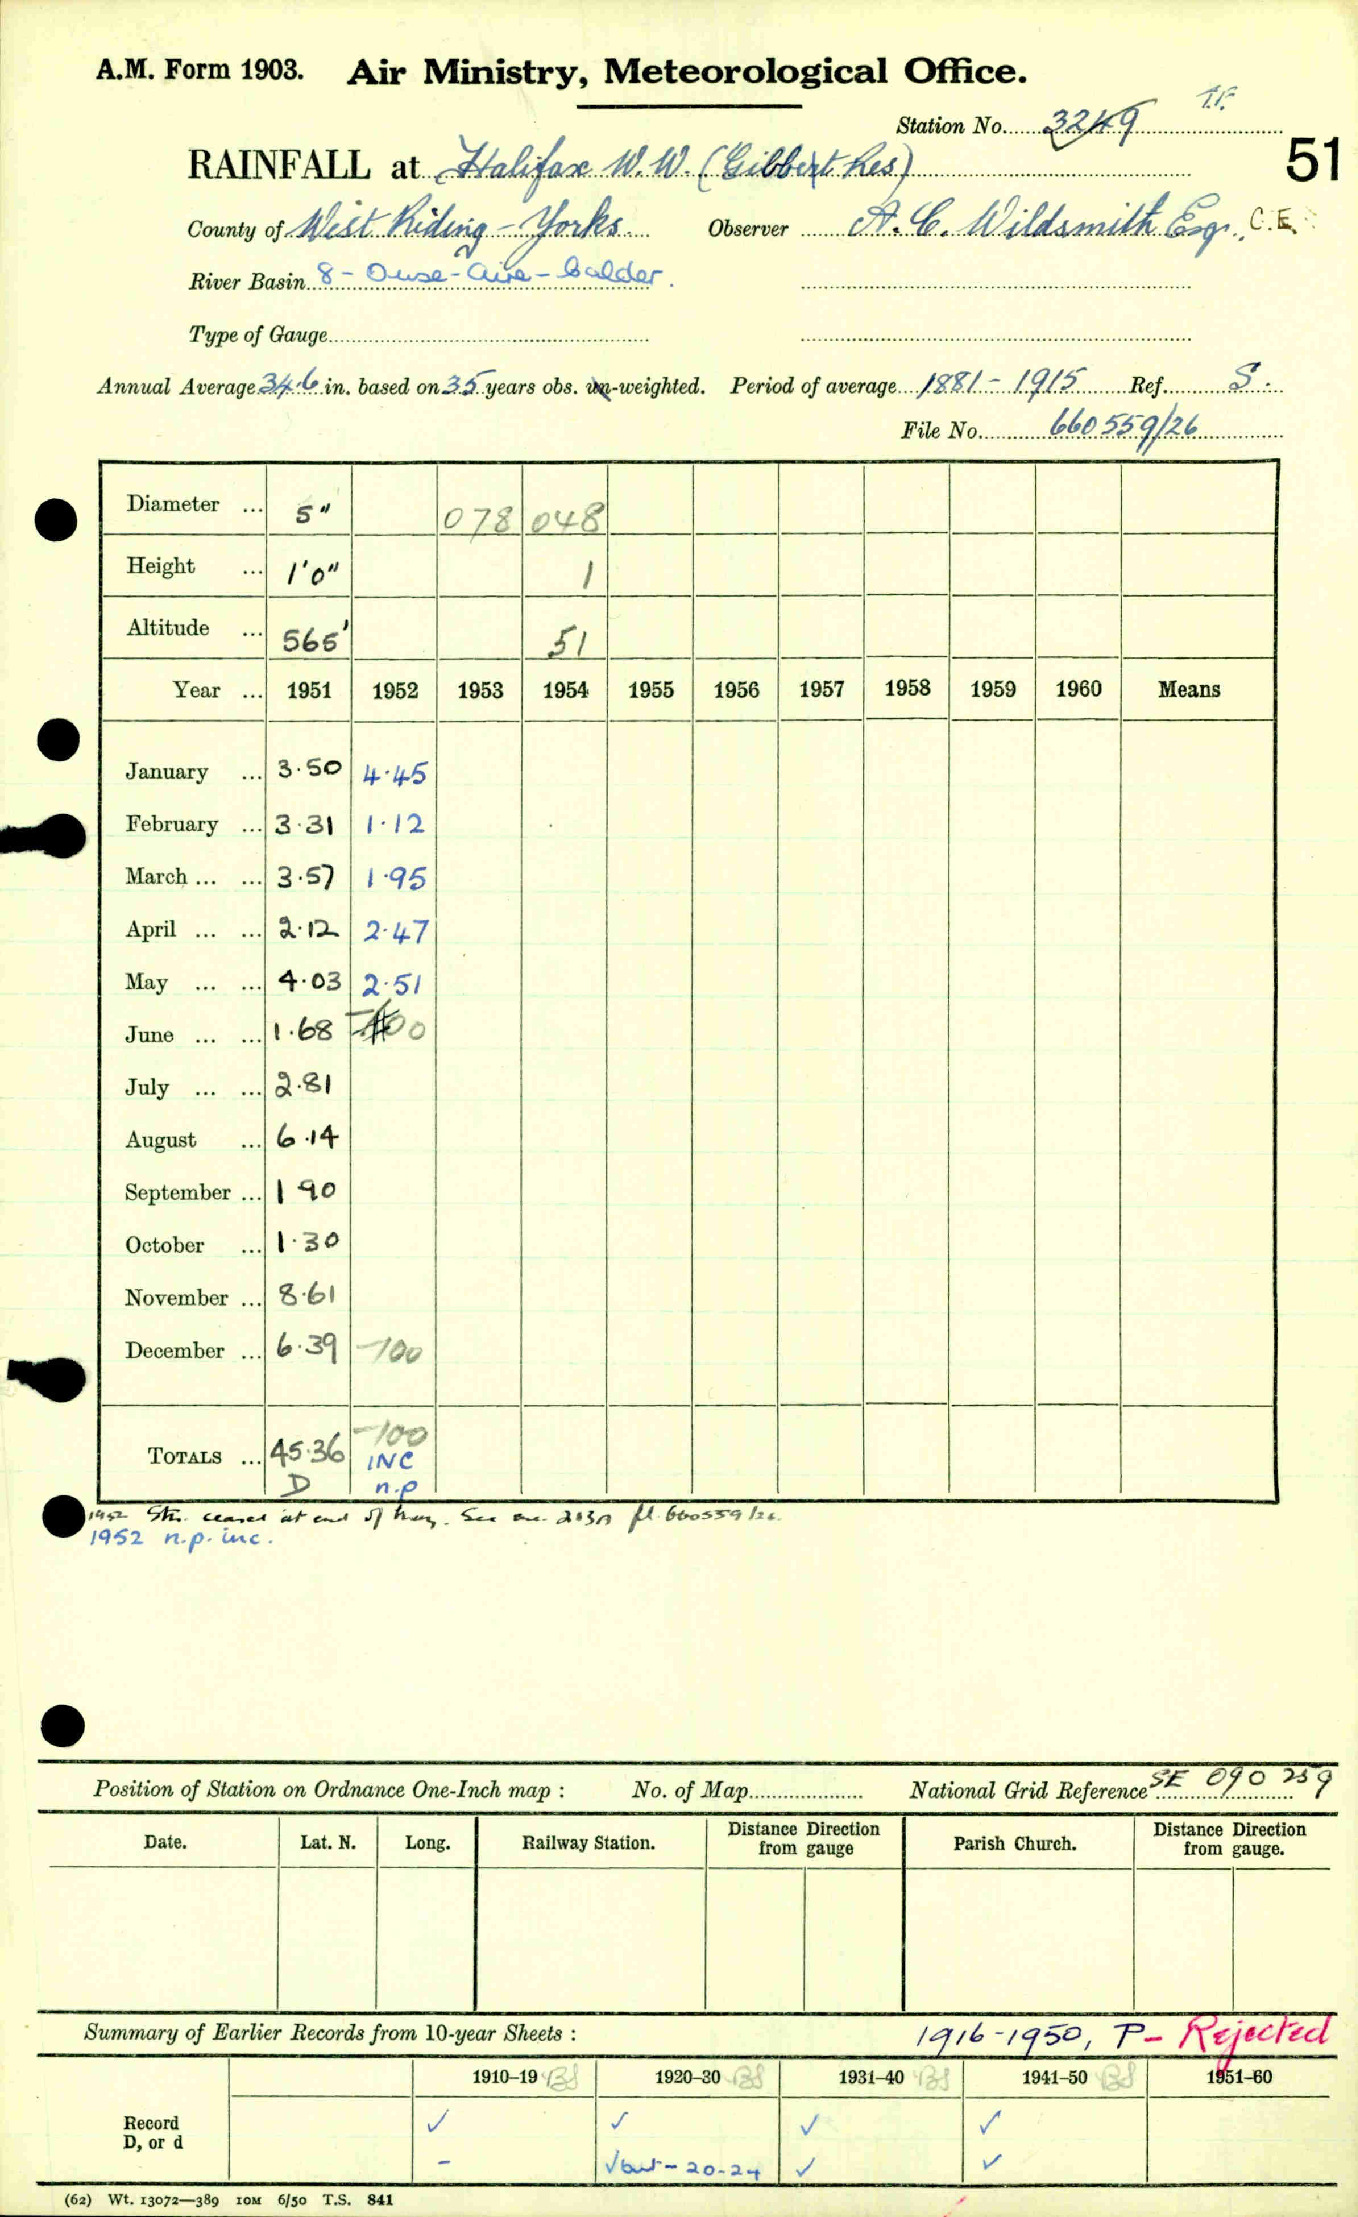 A.M. Form 1903. Air Ministry, Meteorological Office.
T.F.
Station No. 3249
51
RAINFALL at Halifax W.W. (Gibbet Res)
County of West Riding - Yorks. Observer A. C. Wildsmith Esq., C.E.
River Basin 8 - Ouse - Aire - Calder.
Type of Gauge
Annual Average 34.6 in. based on 35 years obs. un-weighted. Period of average 1881 - 1915 Ref. S.
File No. 660559/26
Diameter ... 5" 078 048
Height ... 1'0" 1
Altitude ... 565' 51
Year ... 1951 1952 1953 1954 1955 1956 1957 1958 1959 1960 Means
January ... 3.50 4.45
February ... 3.31 1.12
March ... ... 3.57 1.95
April ... ... 2.12 2.47
May ... ... 4.03 2.51
June ... ... 1.68
July ... ... 2.81
August ... 6.14
September ... 1 90
October ... 1.30
November ... 8.61
December ... 6.39 -100
-100
TOTALS ... 45.36 INC
D n.p
1952 Stn. ceased at end of May. See 660559/26.
1952 n.p. inc.
Position of Station on Ordnance One-Inch map : No. of Map National Grid Reference SE 090 259
Date. Lat. N. Long. Railway Station. Distance from Direction gauge Parish Church. Distance from Direction gauge.
Summary of Earlier Records from 10-year Sheets : 1916-1950, P- Rejected
1910–19 BS 1920–30 BS 1931–40 BS 1941–50 BS 1951–60
Record ✓ ✓ ✓ ✓
D, or d - ✓ but - 20-24 ✓ ✓
(62) Wt. 13072—389 10M 6/50 T.S. 841